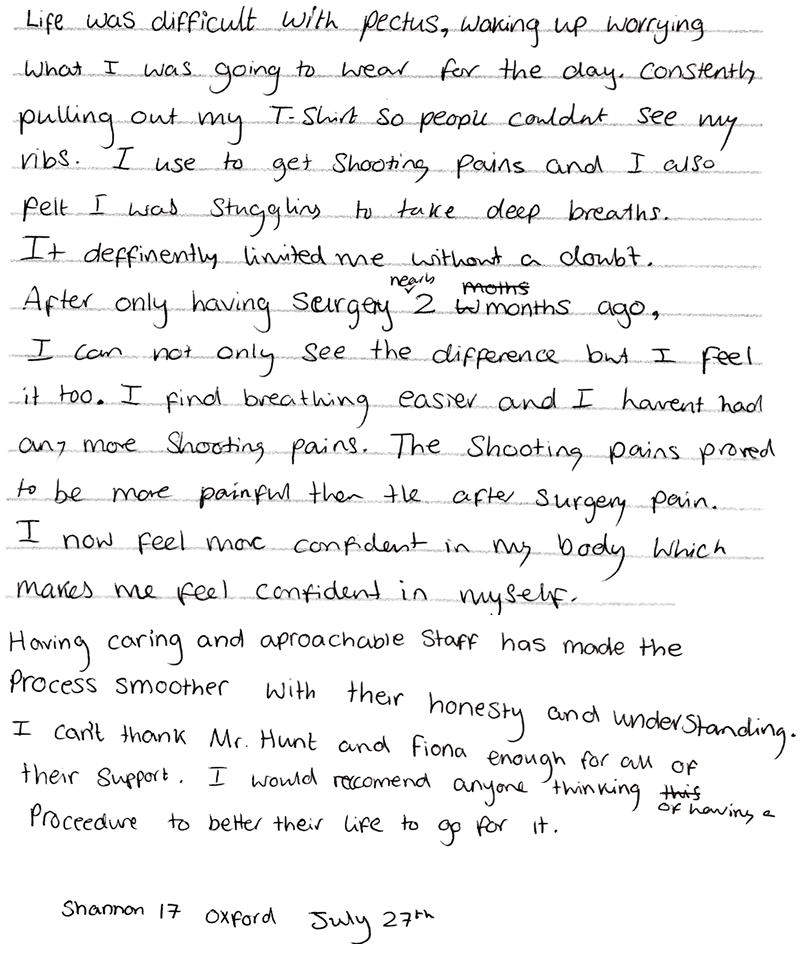 Life was difficult with pectus, waking up worrying
what I was going to wear for the day. Constently
pulling out my T-Shirt so people couldnt see my
ribs. I use to get shooting pains and I also
felt I was stuggling to take deep breaths.
It deffinently limited me without a doubt.
After only having seurgey nearly 2 moths months ago,
I can not only see the difference but I feel
it too. I find breathing easier and I havent had
any more shooting pains. The shooting pains proved
to be more painful then the after surgery pain.
I now feel more confident in my body which
makes me feel confident in myself.
Having caring and aproachable staff has made the
process smoother with their honesty and understanding.
I can't thank Mr. Hunt and Fiona enough for all of
their support. I would recomend anyone thinking this of having a
proceedure to better their life to go for it.
Shannon 17 Oxford July 27th